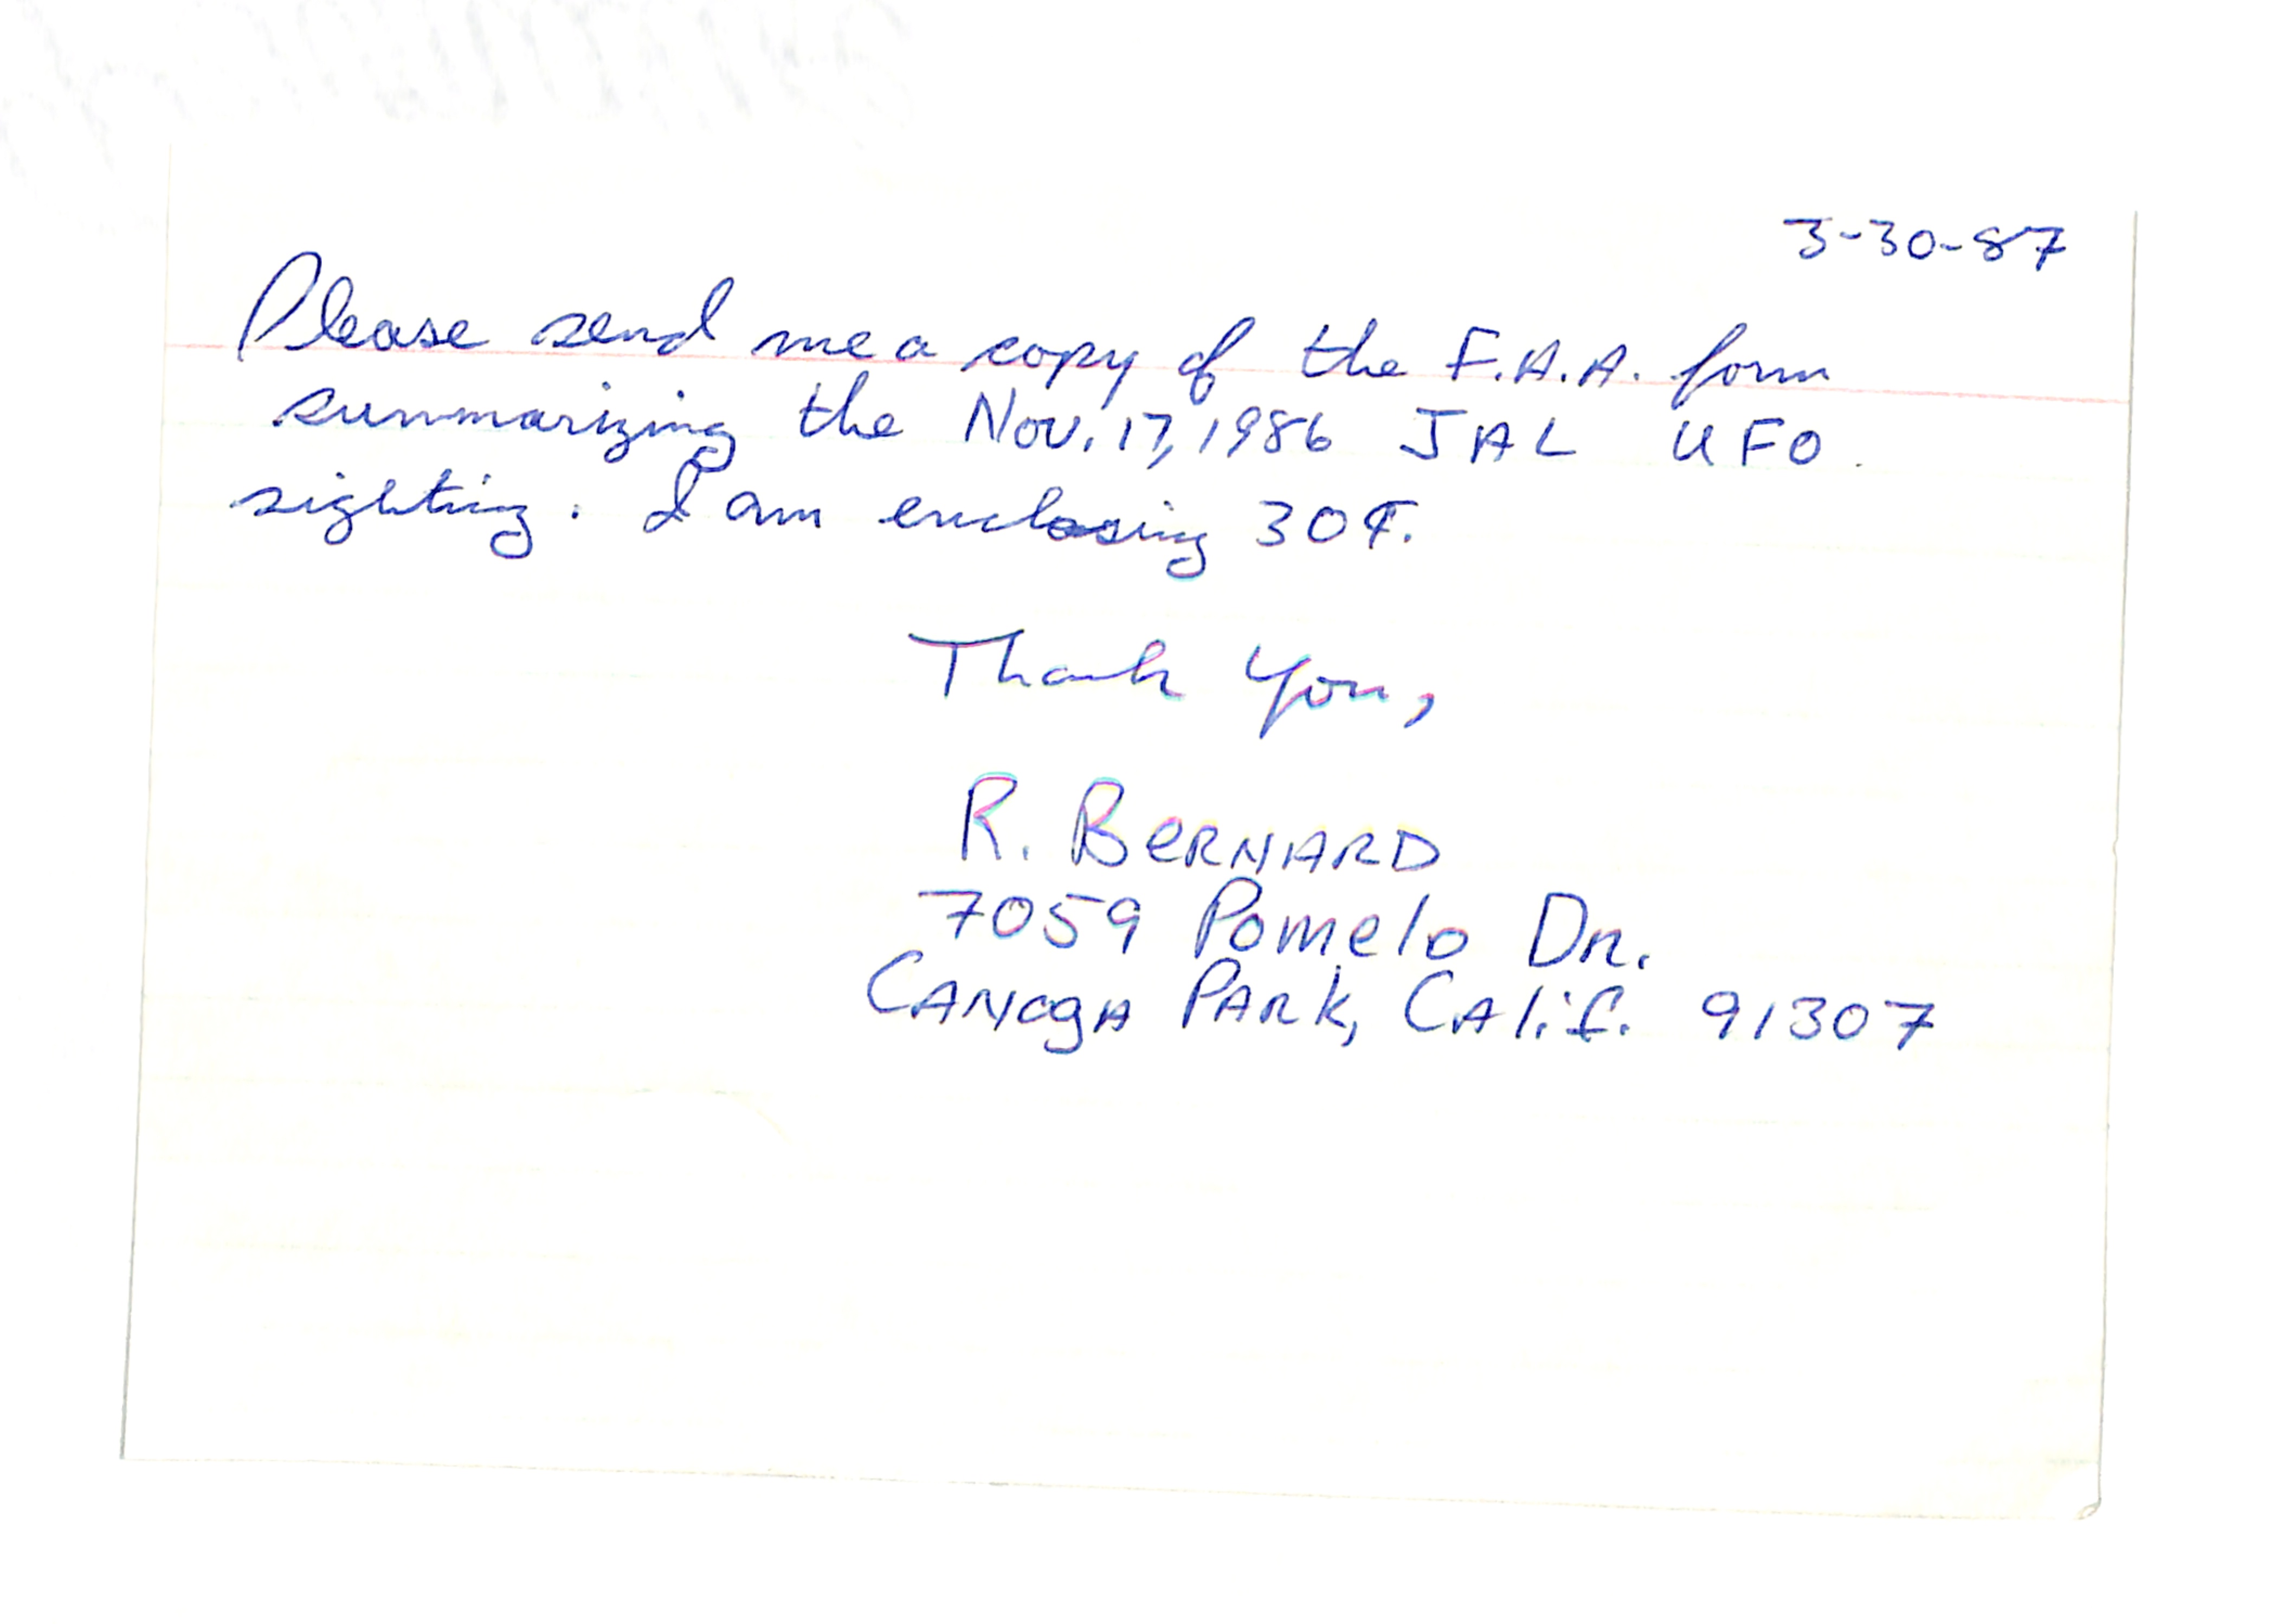 3-30-87
Please send me a copy of the F.A.A. form
summarizing the Nov. 17, 1986 JAL UFO
sighting. I am enclosing 30¢.
Thank you,
R. BERNARD
7059 Pomelo Dr.
CANOGA PARK, CAlif. 91307